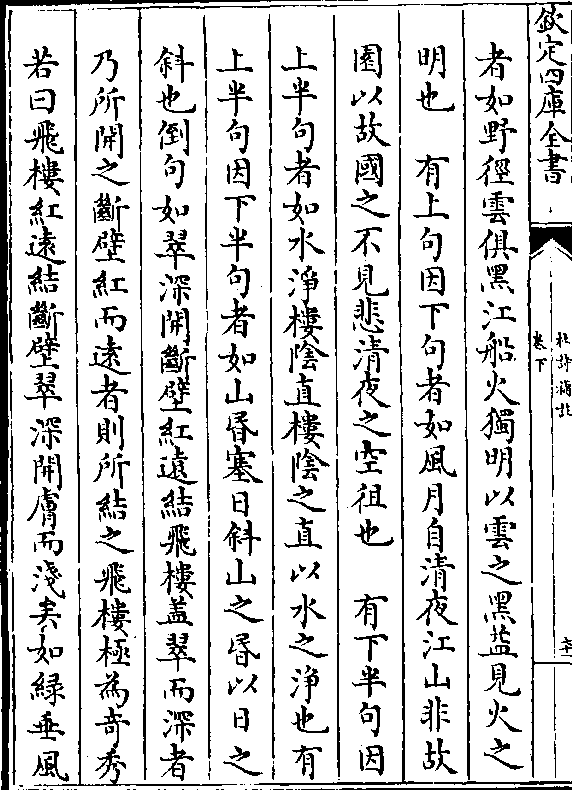 欽定四庫全書
杜詩攟
卷下
者如野徑雲俱黑江船火獨明以雲之黑益見火之
明也　有上句因下句者如風月自清夜江山非故
園以故國之不見悲清夜之空徂也　有下半句因
上半句者如水淨樓陰直樓陰之直以水之淨也有
上半句因下半句者如山昏塞日斜山之昏以日之
斜也倒句如翠深開斷壁紅遠結飛樓盖翠而深者
乃所開之斷壁紅而遠者則所結之飛樓極為竒秀
若曰飛樓紅遠結斷壁翠深開膚而淺矣如緑垂風